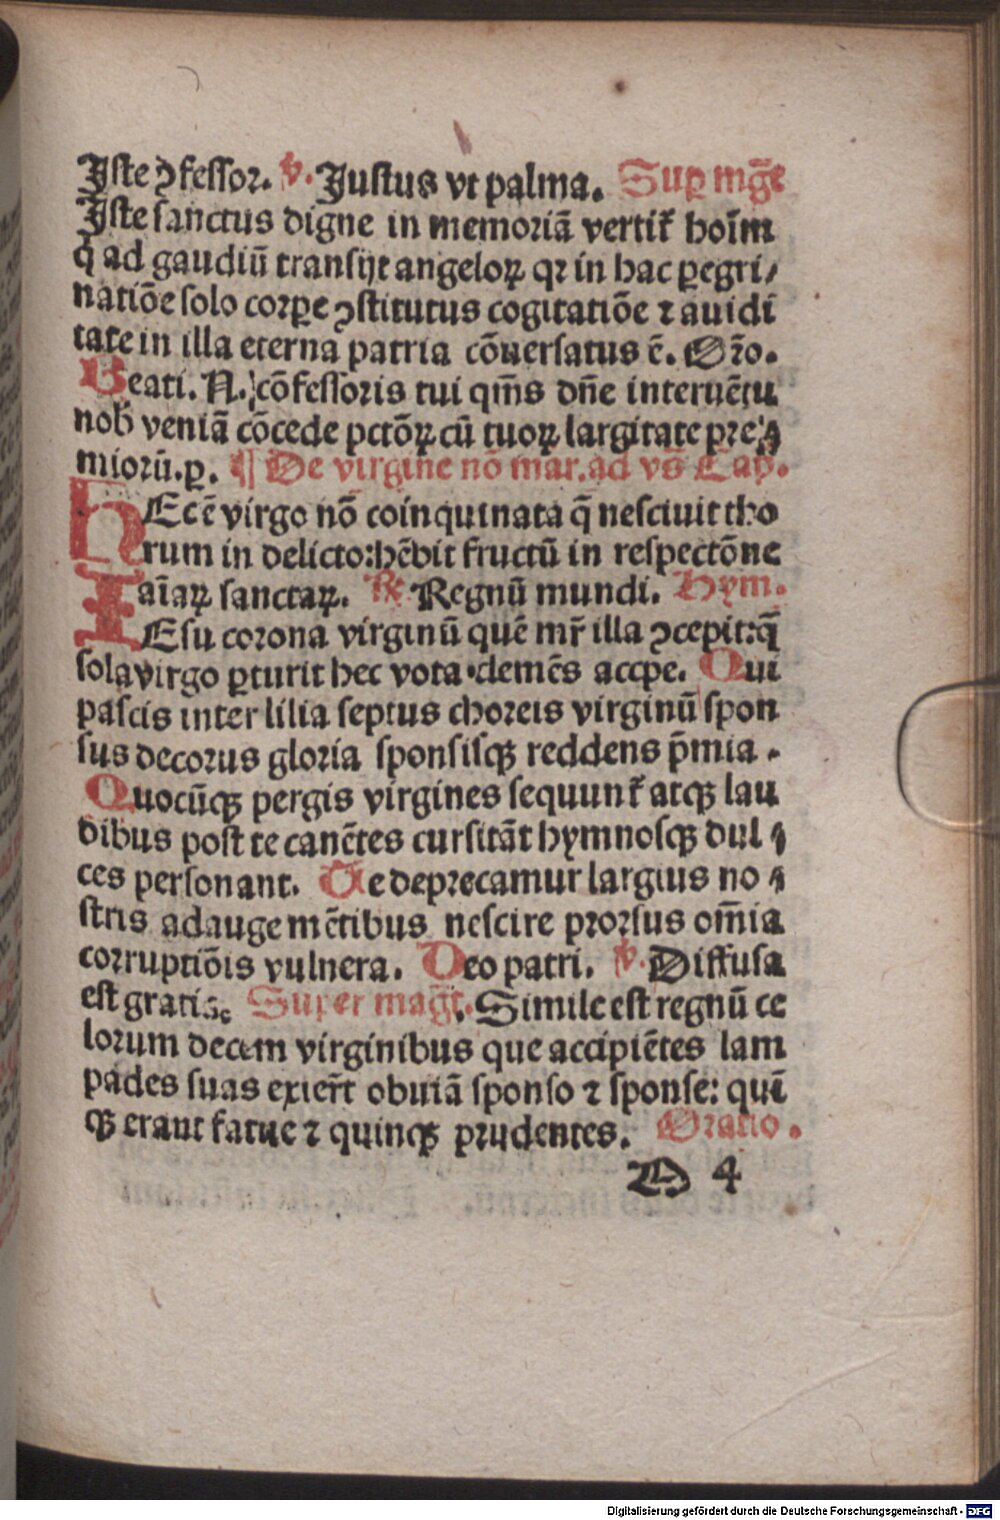 Iste ꝯfessor. ℣. Justus vt palma. Suꝑ mg̃t
Iste sanctus digne in memoriã vertit᷑ hoĩm
q̃ ad gaudiũ transijt angeloꝝ qꝛ in hac ꝑegri/
natiõe solo corꝑe ꝯstitutus cogitatiõe ⁊ auidi
tate in illa eterna patria cõuersatus ẽ. Or̃o.
Beati. N. cõfessoris tui qm̃s dñe interuẽtu
nob̃ veniã cõcede pctõꝝ cũ tuoꝝ largitate pre⸗
mioꝛũ.ꝑ. ¶ De virgine nõ mar.ad vs̃ Cap.
HEc ẽ virgo nõ coinquinata q̃ nesciuit tho
rum in delicto:hẽbit fructũ in respectõne
aĩaꝝ sanctaꝝ. ℟ Regnũ mundi. Hym.
IEsu corona virginũ quẽ mr̃ illa ꝯcepit:q̃
sola virgo ꝑturit hec vota clemẽs accipe. Qui
pascis inter lilia septus choreis virginũ spon
sus decorus gloria sponsisqꝫ reddens p̃mia .
Quocũqꝫ pergis virgines sequunt᷑ atqꝫ lau
dibus post te canẽtes cursitãt hymnosqꝫ dul⸗
ces personant. Te deprecamur largius no⸗
stris adauge mẽtibus nescire prorsus om̃ia
corruptiõis vulnera. Deo patri. ℣. Diffusa
est gratia. Super mag̃t. Simile est regnũ ce
lorum decem virginibus que accipiẽtes lam
pades suas exier̃t obuiã sponso ⁊ sponse: quĩ
qꝫ erant fatue ⁊ quinqꝫ prudentes. Oratio.
D 4
Digitalisierung gefördert durch die Deutsche Forschungsgemeinschaft - DFG